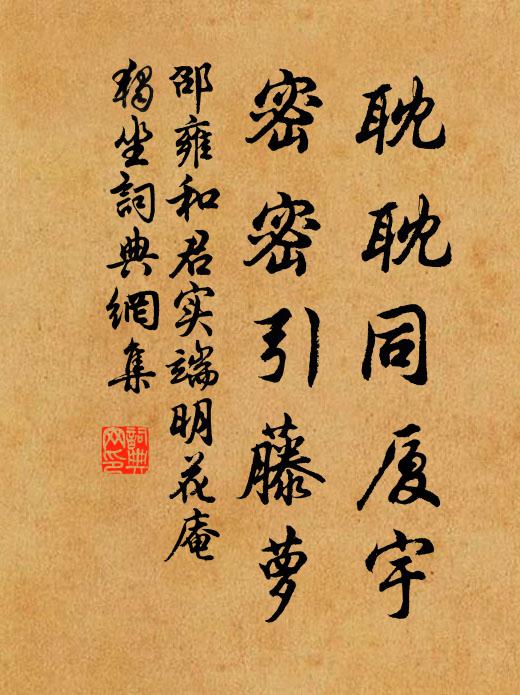 耽耽同厦宇
密密引藤萝
邵雍和君实端明花庵
独坐詞典網集
詞典网印